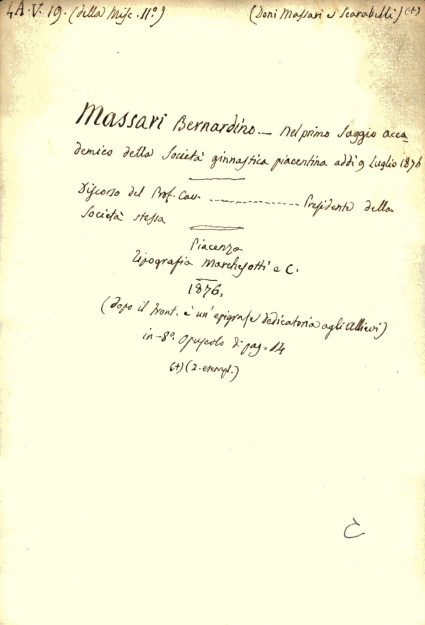 4A.V.19. (della Misc. 11º) (Doni Massari e Scarabelli) (+)
Massari Bernardino — Nel primo Saggio acca=
demico della Società ginnastica piacentina addì 9 Luglio 1876
Discorso del Prof. Cav. ------------- Presidente della
Società stessa
Piacenza
Tipografia Marchesotti e C.
1876.
(dopo il front. è un' epigrafe dedicatoria agli Allievi)
in-8º. Opuscolo di pag. 14
(+) (2. esempl.)